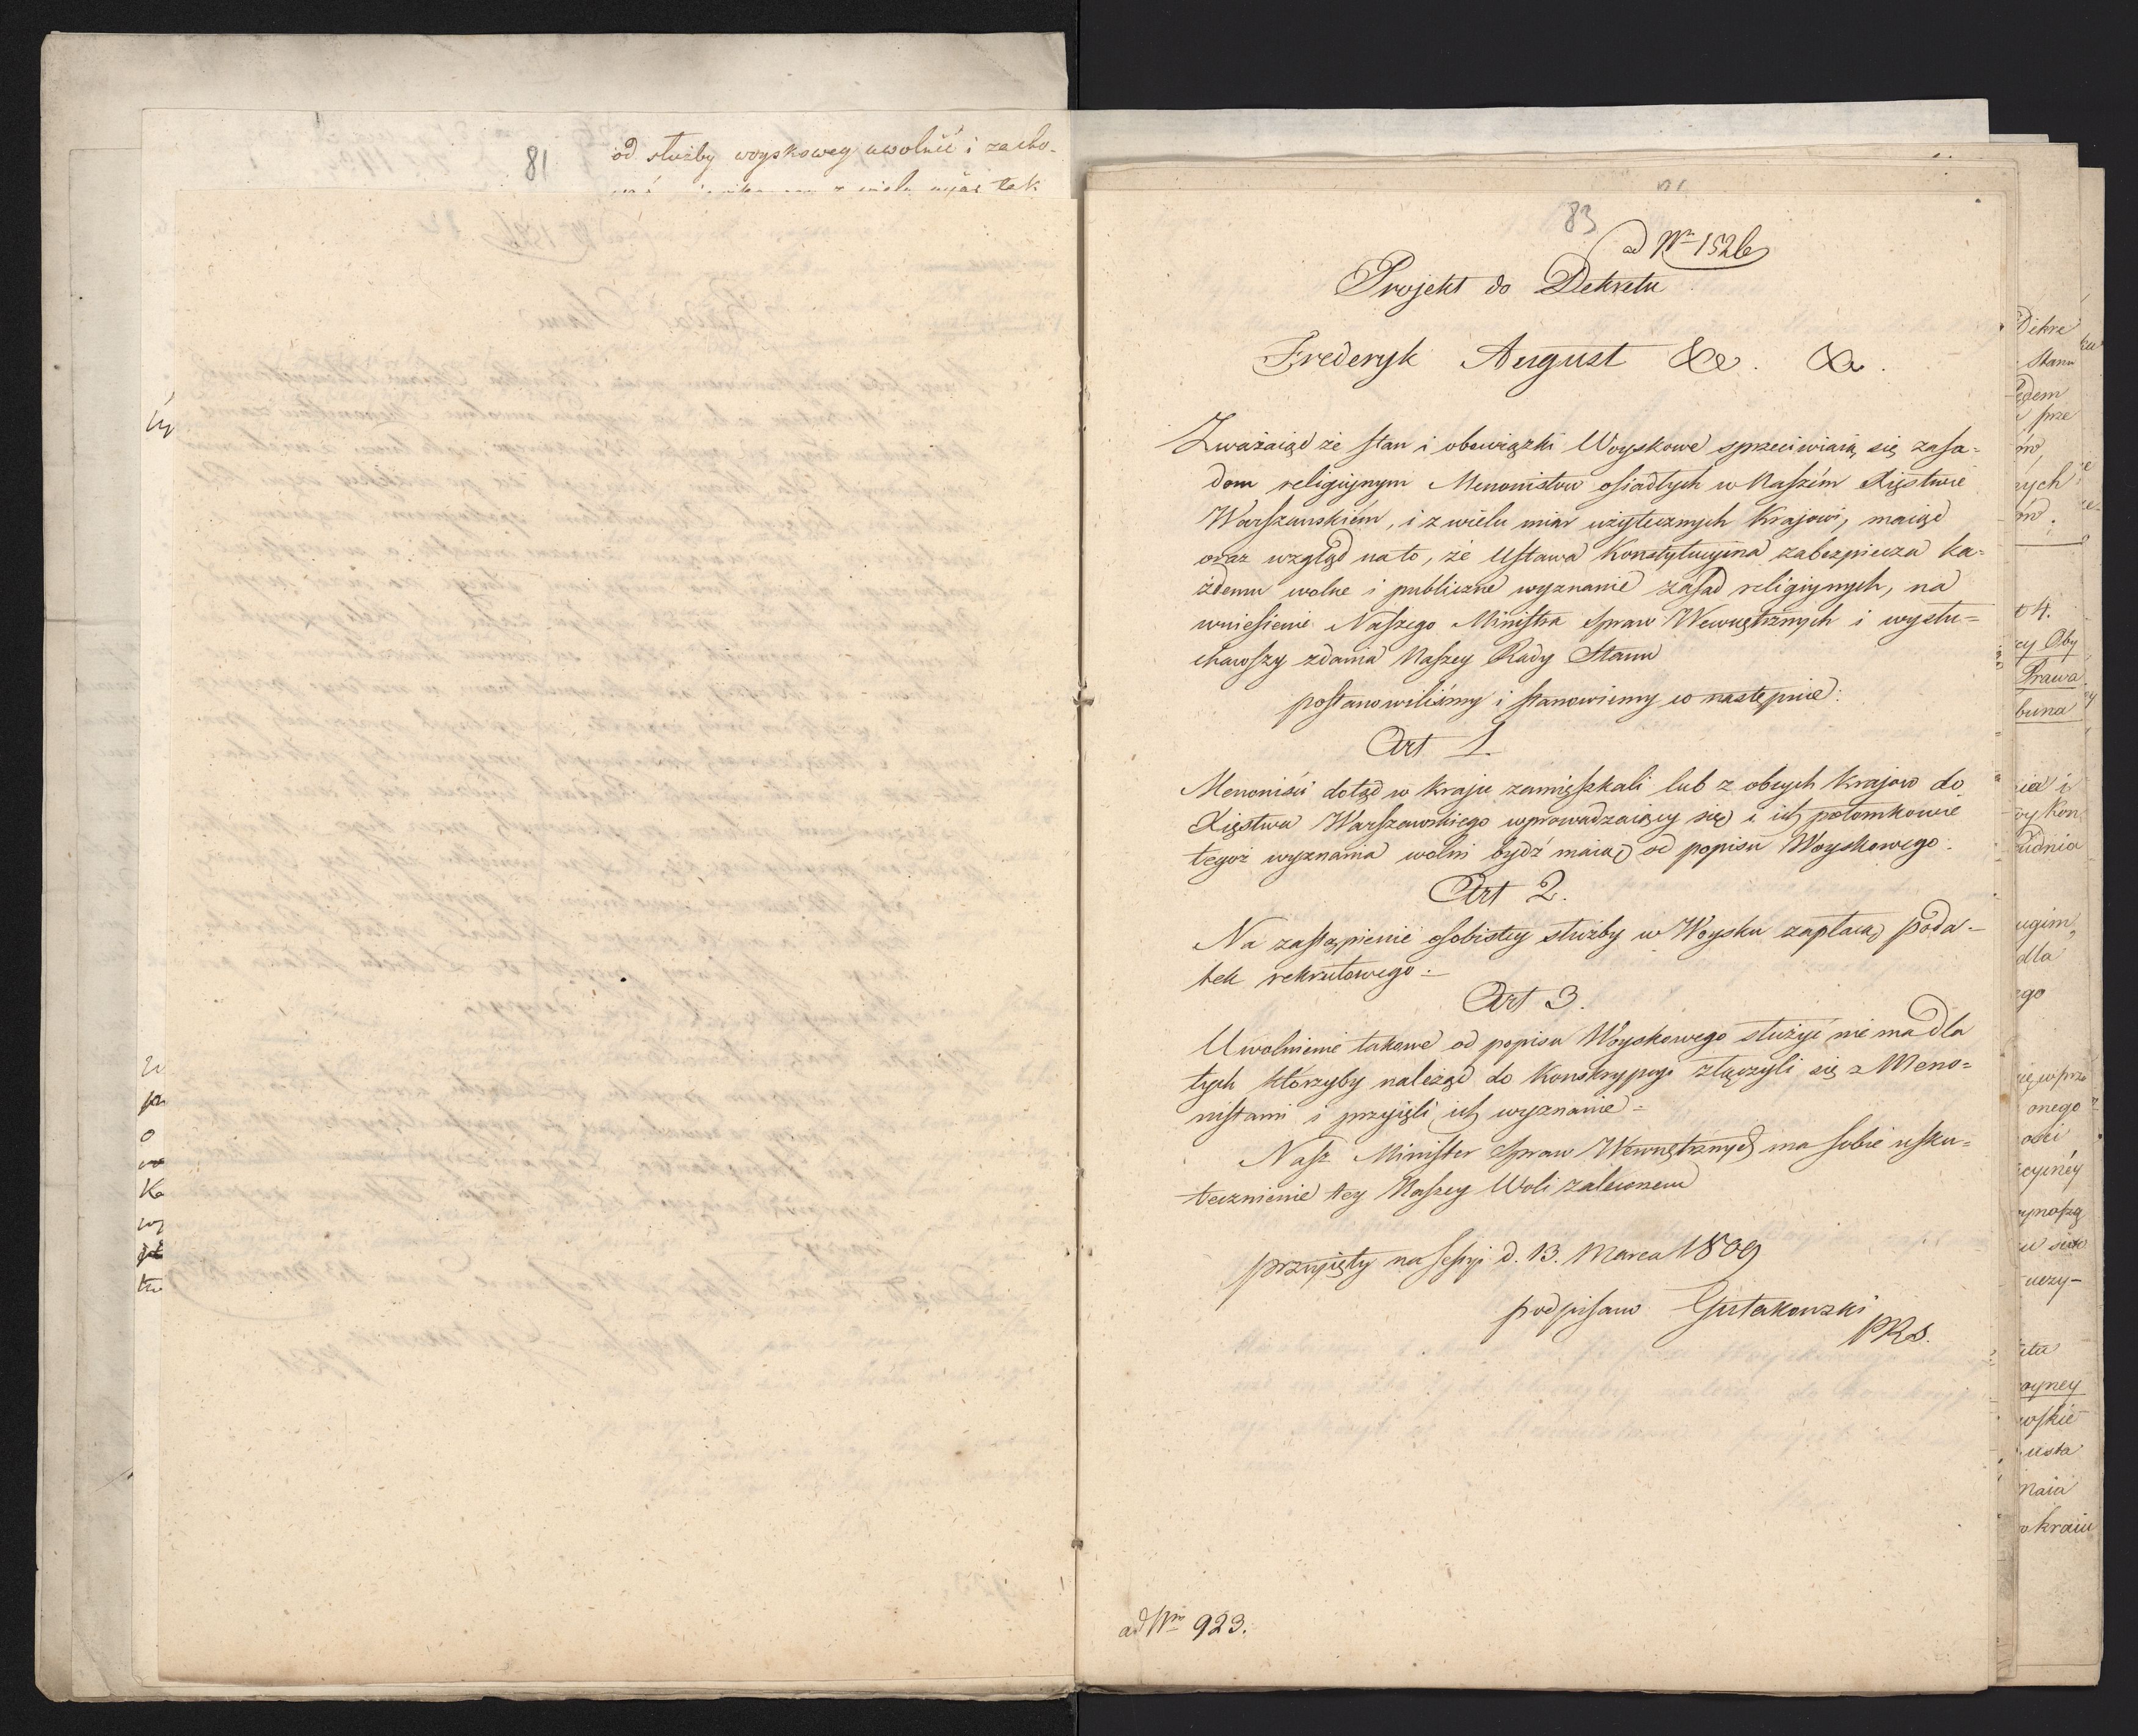 81
od służby woyskowey uwolnić i zacho-
83
ad Nro 1526
Projekt do Dekretu
Frederyk August &c. &c.
Zważaiąc że stan i obowiązki Woyskowe sprzeciwiaią się zasa=
dom religiynym Menonistow osiadłych w Naszém Xięstwie
Warszawskiém, i z wielu miar użytecznych Krajowi, maiąc
oraz wzgląd na to, że Ustawa Konstytucyina zabezpiecza ka=
żdemu wolne i publiczne wyznanie zasad religiynych, na
wniesienie Naszego Ministra Spraw Wewnętrznych i wysłu=
chawszy zdania Naszey Rady Stanu
postanowiliśmy i stanowiemy co następuie:
Art 1.
Menoniści dotąd w kraju zamięszkali lub z obcych krajow do
Xięstwa Warszawskiego wprowadzaiący się i ich potomkowie
tegoż wyznania wolni bydź maią od popisu Woyskowego.
Art 2.
Na zastąpienie osobistey służby w Woysku zapłacą poda-
tek rekrutowego.
Art 3.
Uwolnienie takowe od popisu Woyskowego służyć nie ma dla
tych którzyby należąc do Konskrypcyi złączyli się z Meno=
nistami i przyięli ich wyznanie.
Nasz Minister Spraw Wewnętrznych ma sobie usku=
tecznienie tey Naszey Woli zalecone
przyięty na Sessyi d. 13. Marca 1809
podpisano Gutakowski
PRS.
ad Nro 923.
Dekre
Stanu
prze
zych
4.
Oby
Prawa
buna
Kon
ugim
dla
ego
onego
ości
cyiney
uczy-
oyney
wskie
usta
maia
kraiu